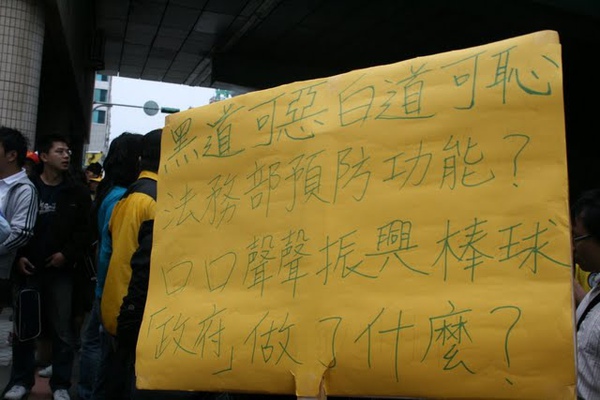 黑道可惡白道可恥
法務部預防功能?
口口聲聲振興棒球
「政府」做了什麼?